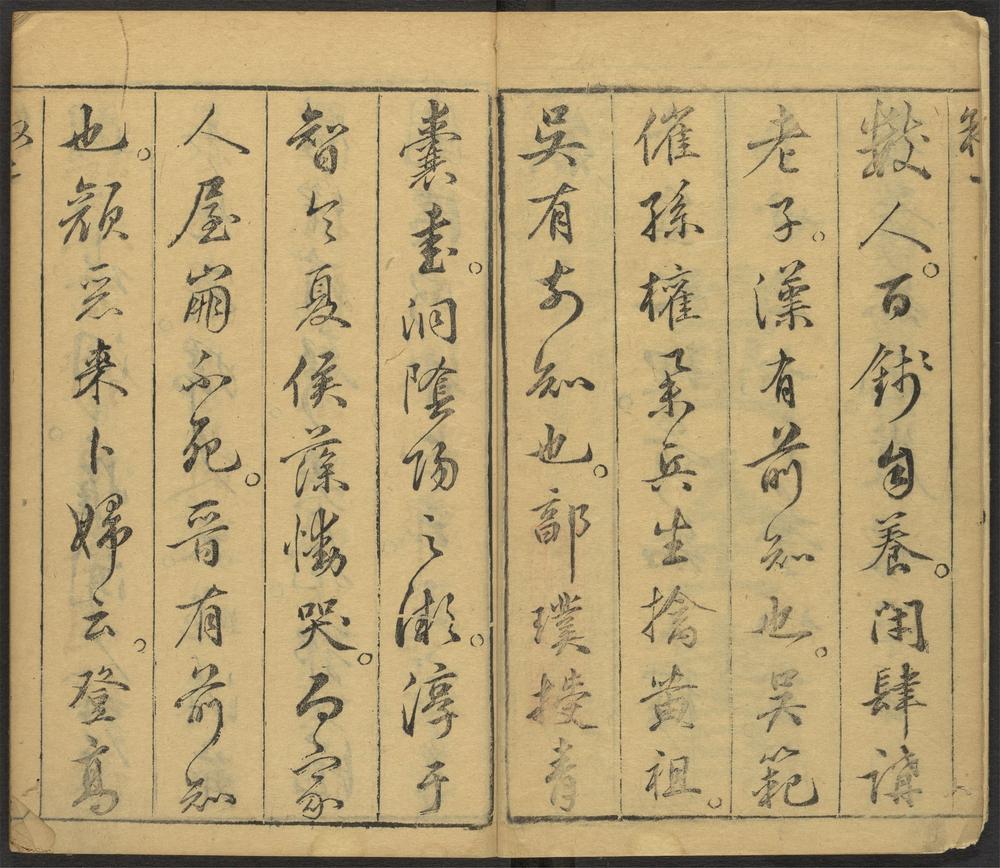 數人百錢自養閉肆講
老子漢有前知也吳範
催孫權累兵生擒黃祖
吳有前知也郭璞授青
囊書洞陰陽之術淳于
智令夏侯藻慟哭百家
人屋崩不死晉有前知
也顏惡來卜婦云登高